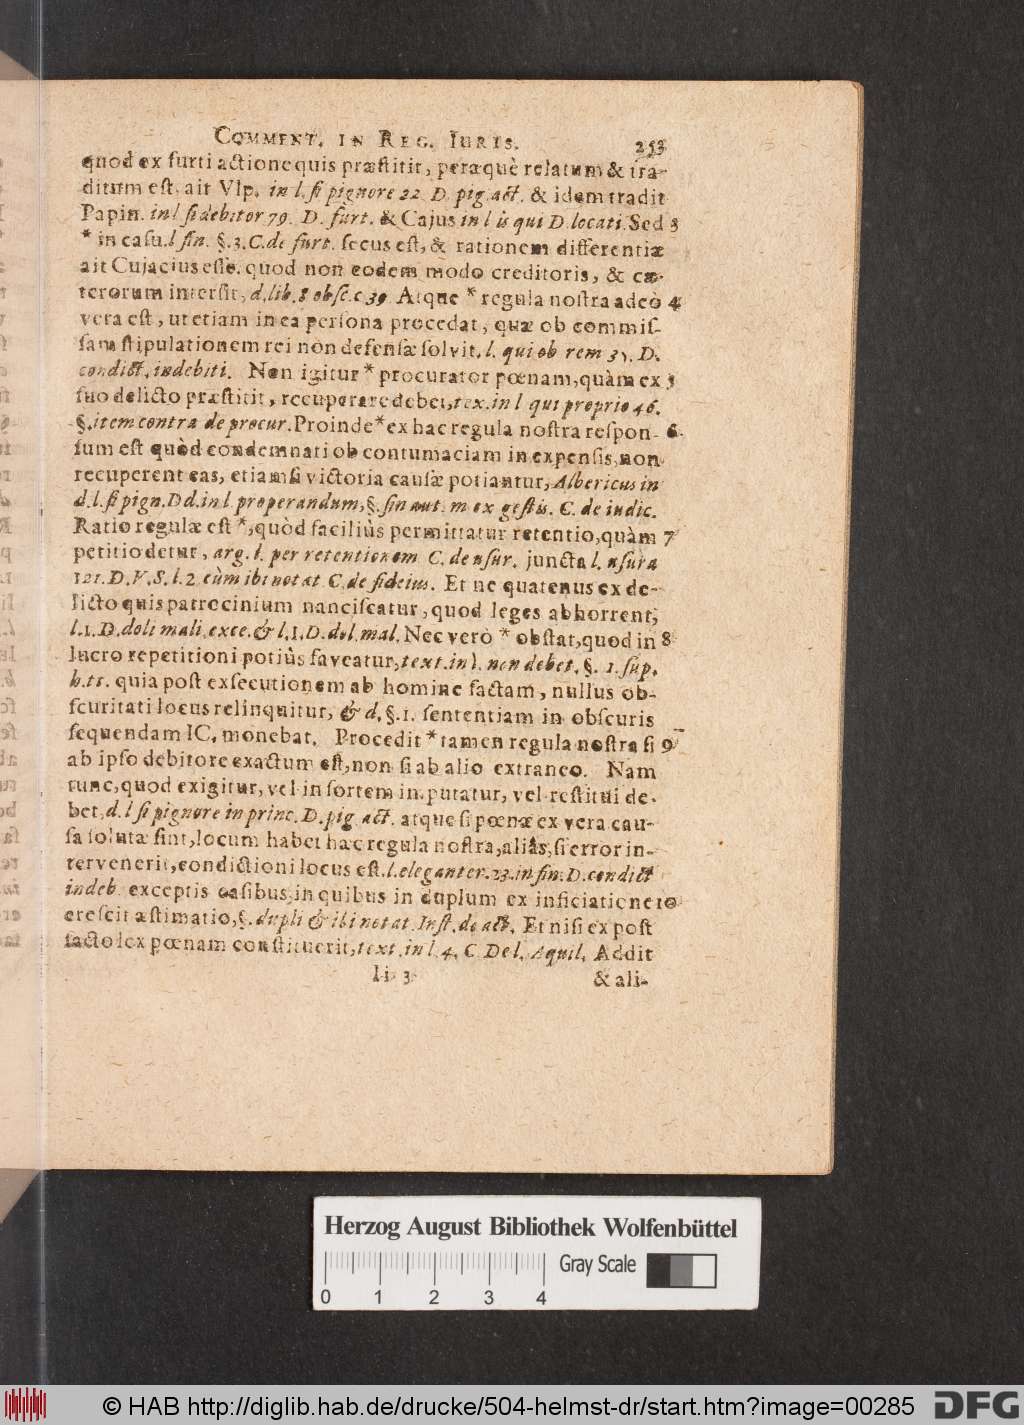 COMMENT. IN REG. IURIS. 253
quod ex furti actione quis præstitit, peræquè relatum & tra-
ditum est, ait Vlp. in l. si pignore 22. D. pig. act. & idem tradit
Papin. in l si debitor 79. D. furt. & Cajus in l is qui D. locati. Sed 3
* in casu. l fin. §. 3. C. de furt. secus est, & rationem differentiæ
ait Cujacius esse. quod non eodem modo creditoris, & cæ-
terorum intersit, d. lib. 8 obse. c 39. Atque * regula nostra adeò 4
vera est, ut etiam in ea persona procedat, quæ ob commis-
sam stipulationem rei non defensæ solvit. l. qui ob rem D.
condict. indebiti. Non igitur * procurator pœnam, quàm ex 5
suo delicto præstitit, recuperare debet, tex. in l qui proprio 46.
§. item contra de procur. Proinde * ex hac regula nostra respon- 6
sum est quòd condemnati ob contumaciam in expensis, non
recuperent eas, etiamsi victoria causæ potiantur, Albericus in
d. l. si pign. D d. in l. properandum, §. sin aut. m ex gestis. C. de iudic.
Ratio regulæ est *, quòd faciliùs permittatur retentio, quàm 7
petitio detur, arg. l. per retentionem C. de usur. juncta l. usura
121. D. V. S. l. 2 cùm ibi notat C. de fideius. Et ne quatenus ex de-
licto quis patrocinium nanciscatur, quod leges abhorrent,
l. 1. D. doli mali exce. & l. 1. D. dol. mal. Nec verò * obstat, quod in 8
lucro repetitioni potiùs faveatur, text. in l. non debet. §. 1. sup.
h. tt. quia post exsecutionem ab homine factam, nullus ob-
scuritati locus relinquitur, & d. §. 1. sententiam in obscuris
sequendam IC. monebat. Procedit * tamen regula nostra si 9
ab ipso debitore exactum est, non si ab alio extraneo. Nam
tunc, quod exigitur, vel in sortem imputatur, vel restitui de-
bet, d. l si pignore in princ. D. pig. act. atque si pœnæ ex vera cau-
sa solutæ sint, locum habet hæc regula nostra, aliàs, si error in-
tervenerit, condictioni locus est. l. eleganter. 23. in fin. D. condict
indeb. exceptis casibus, in quibus in duplum ex inficiatione 10
crescit æstimatio, §. dupli & ibi notat. Inst. de act. Et nisi ex post
facto lex pœnam constituerit, text. in l. 4. C. De l. Aquil. Addit
Ii 3 & ali-
Herzog August Bibliothek Wolfenbüttel
Gray Scale
0 1 2 3 4
© HAB http://diglib.hab.de/drucke/504-helmst-dr/start.htm?image=00285
DFG